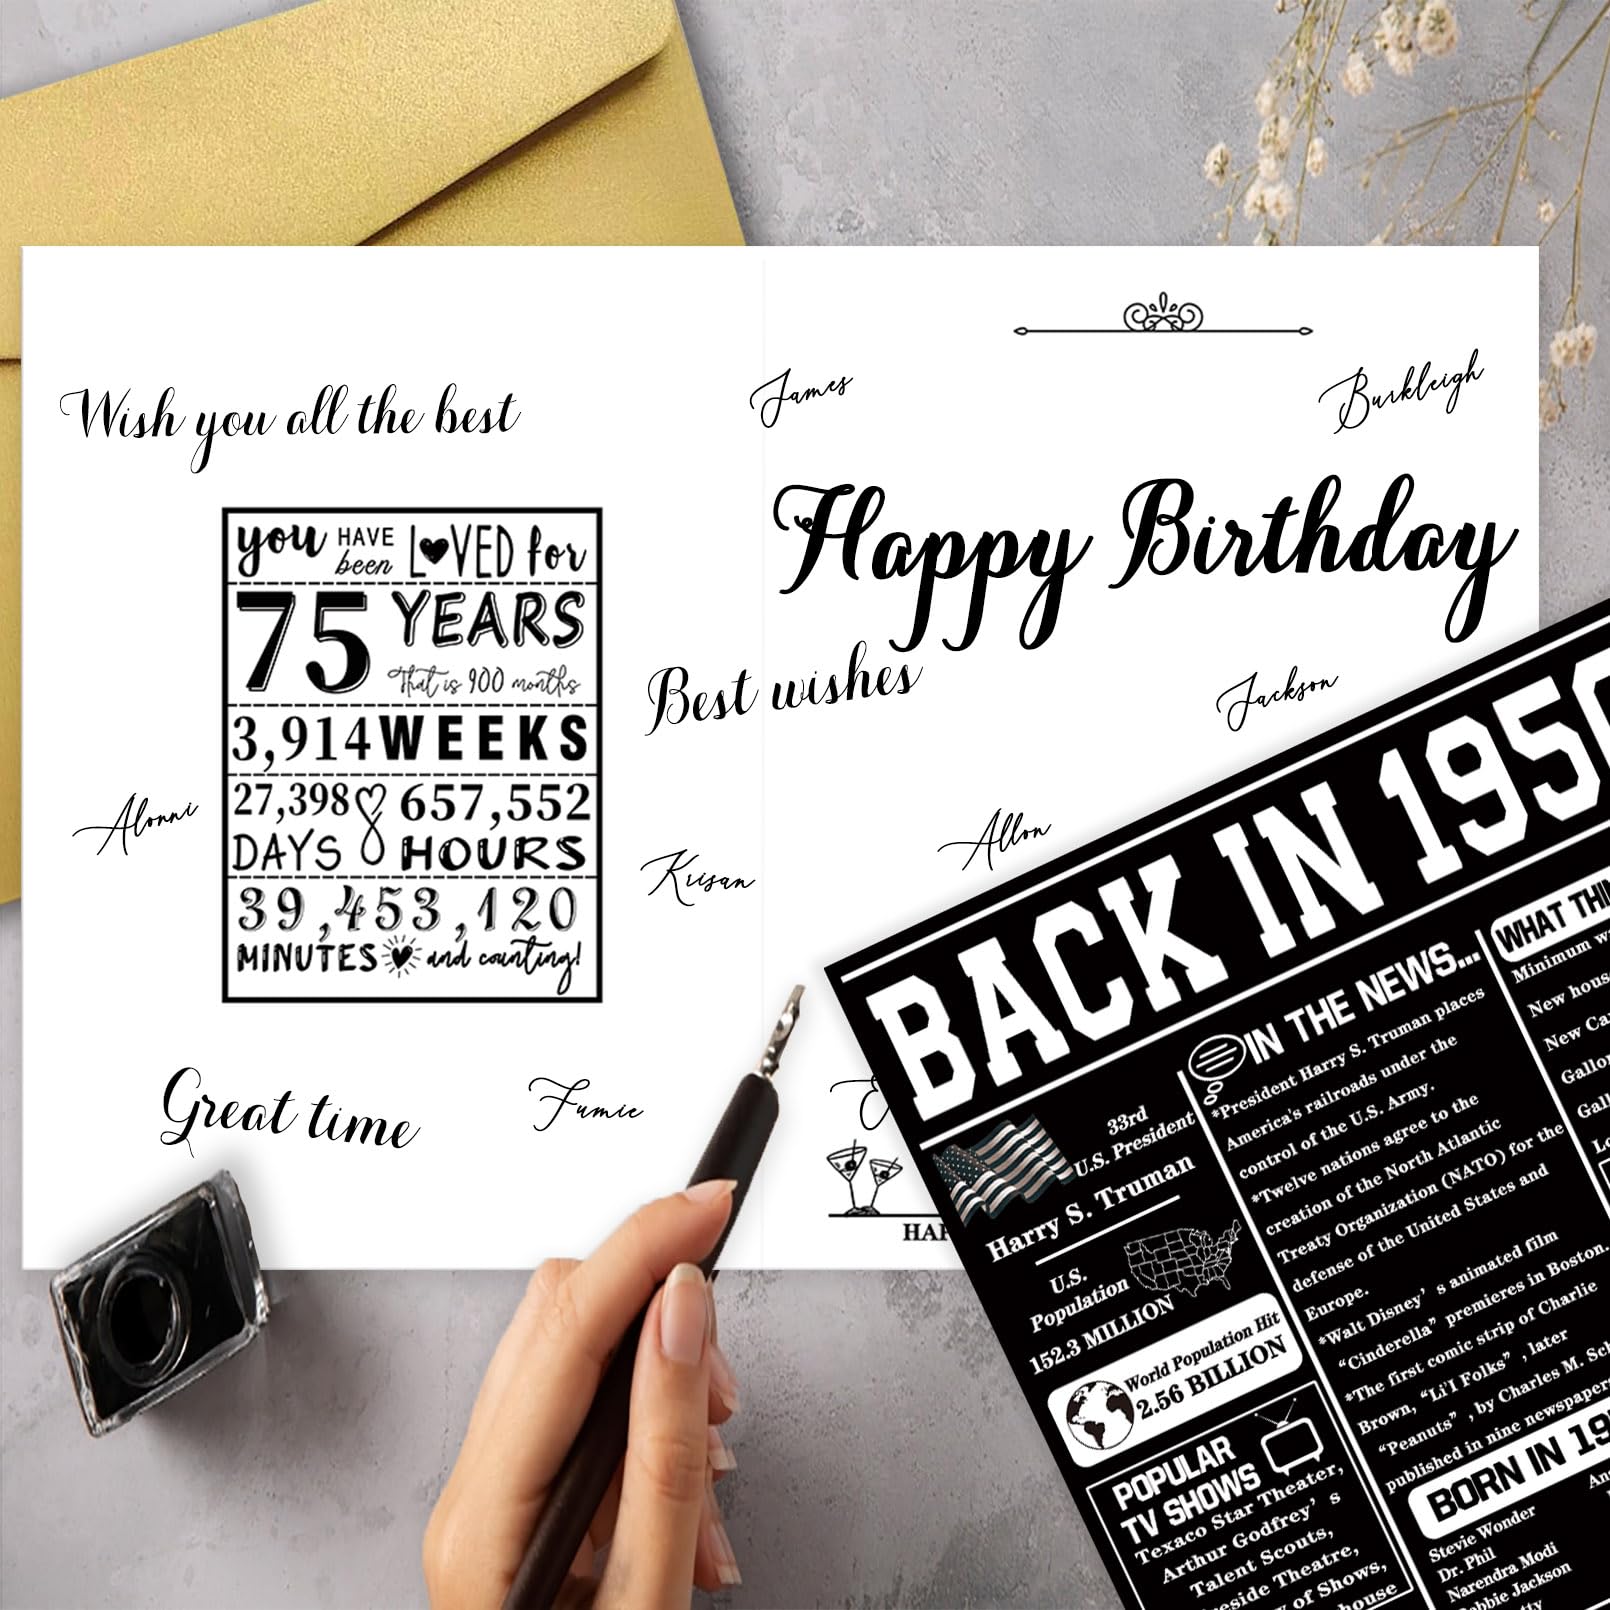 Wish you all the best
you HAVE been LOVED for
75 YEARS
That is 900 months
3,914 WEEKS
27,398 DAYS
657,552 HOURS
39,453,120
MINUTES and counting!
Great time
Alonni
Fumie
Krisan
Best wishes
James
Burkleigh
Happy Birthday
Jackson
Allon
BACK IN 1950
33rd
U.S. President
Harry S. Truman
U.S.
Population
152.3 MILLION
World Population Hit
2.56 BILLION
POPULAR
TV SHOWS
Texaco Star Theater,
Arthur Godfrey's
Talent Scouts,
Theatre,
of Shows,
IN THE NEWS...
*President Harry S. Truman places
America's railroads under the
control of the U.S. Army.
*Twelve nations agree to the
creation of the North Atlantic
Treaty Organization (NATO) for the
defense of the United States and
Europe.
*Walt Disney's animated film
"Cinderella" premieres in Boston.
*The first comic strip of Charlie
Brown, "Li'l Folks", later
"Peanuts", by Charles M.
published in nine newspapers
BORN IN
Stevie Wonder
Dr. Phil
Narendra Modi
Jackson
WHAT
Minimum
New
New